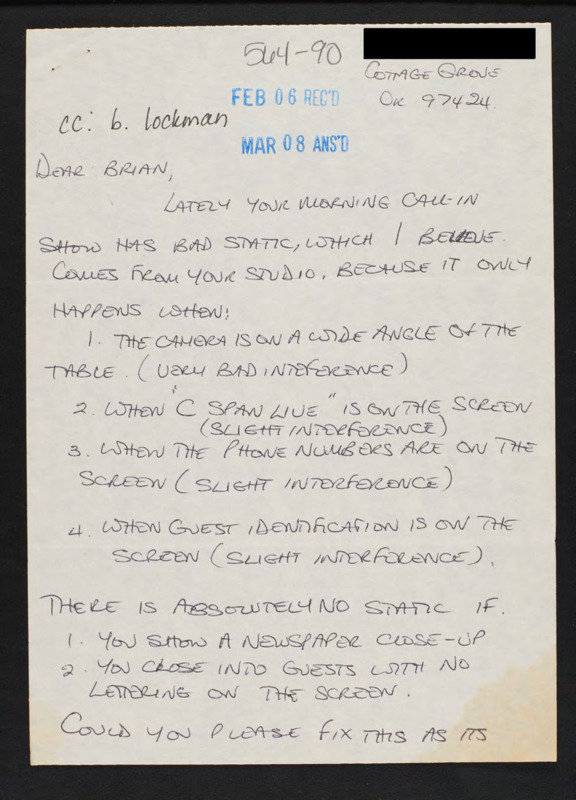 564-90
COTTAGE GROVE
FEB 06 REC'D
OR 97424.
cc: b. lockman
MAR 08 ANS'D
DEAR BRIAN,
LATELY YOUR MORNING CALL-IN
SHOW HAS BAD STATIC, WHICH I BELIEVE
COMES FROM YOUR STUDIO, BECAUSE IT ONLY
HAPPENS WHEN:
1. THE CAMERA IS ON A WIDE ANGLE OF THE
TABLE. (VERY BAD INTEFERENCE)
2. WHEN "C SPAN LIVE" IS ON THE SCREEN
(SLIGHT INTERFERENCE)
3. WHEN THE PHONE NUMBERS ARE ON THE
SCREEN (SLIGHT INTERFERENCE)
4. WHEN GUEST IDENTIFICATION IS ON THE
SCREEN (SLIGHT INTERFERENCE).
THERE IS ABSOLUTELY NO STATIC IF.
1. YOU SHOW A NEWSPAPER CLOSE-UP
2. YOU CLOSE INTO GUESTS WITH NO
LETTERING ON THE SCREEN.
COULD YOU PLEASE FIX THIS AS ITS